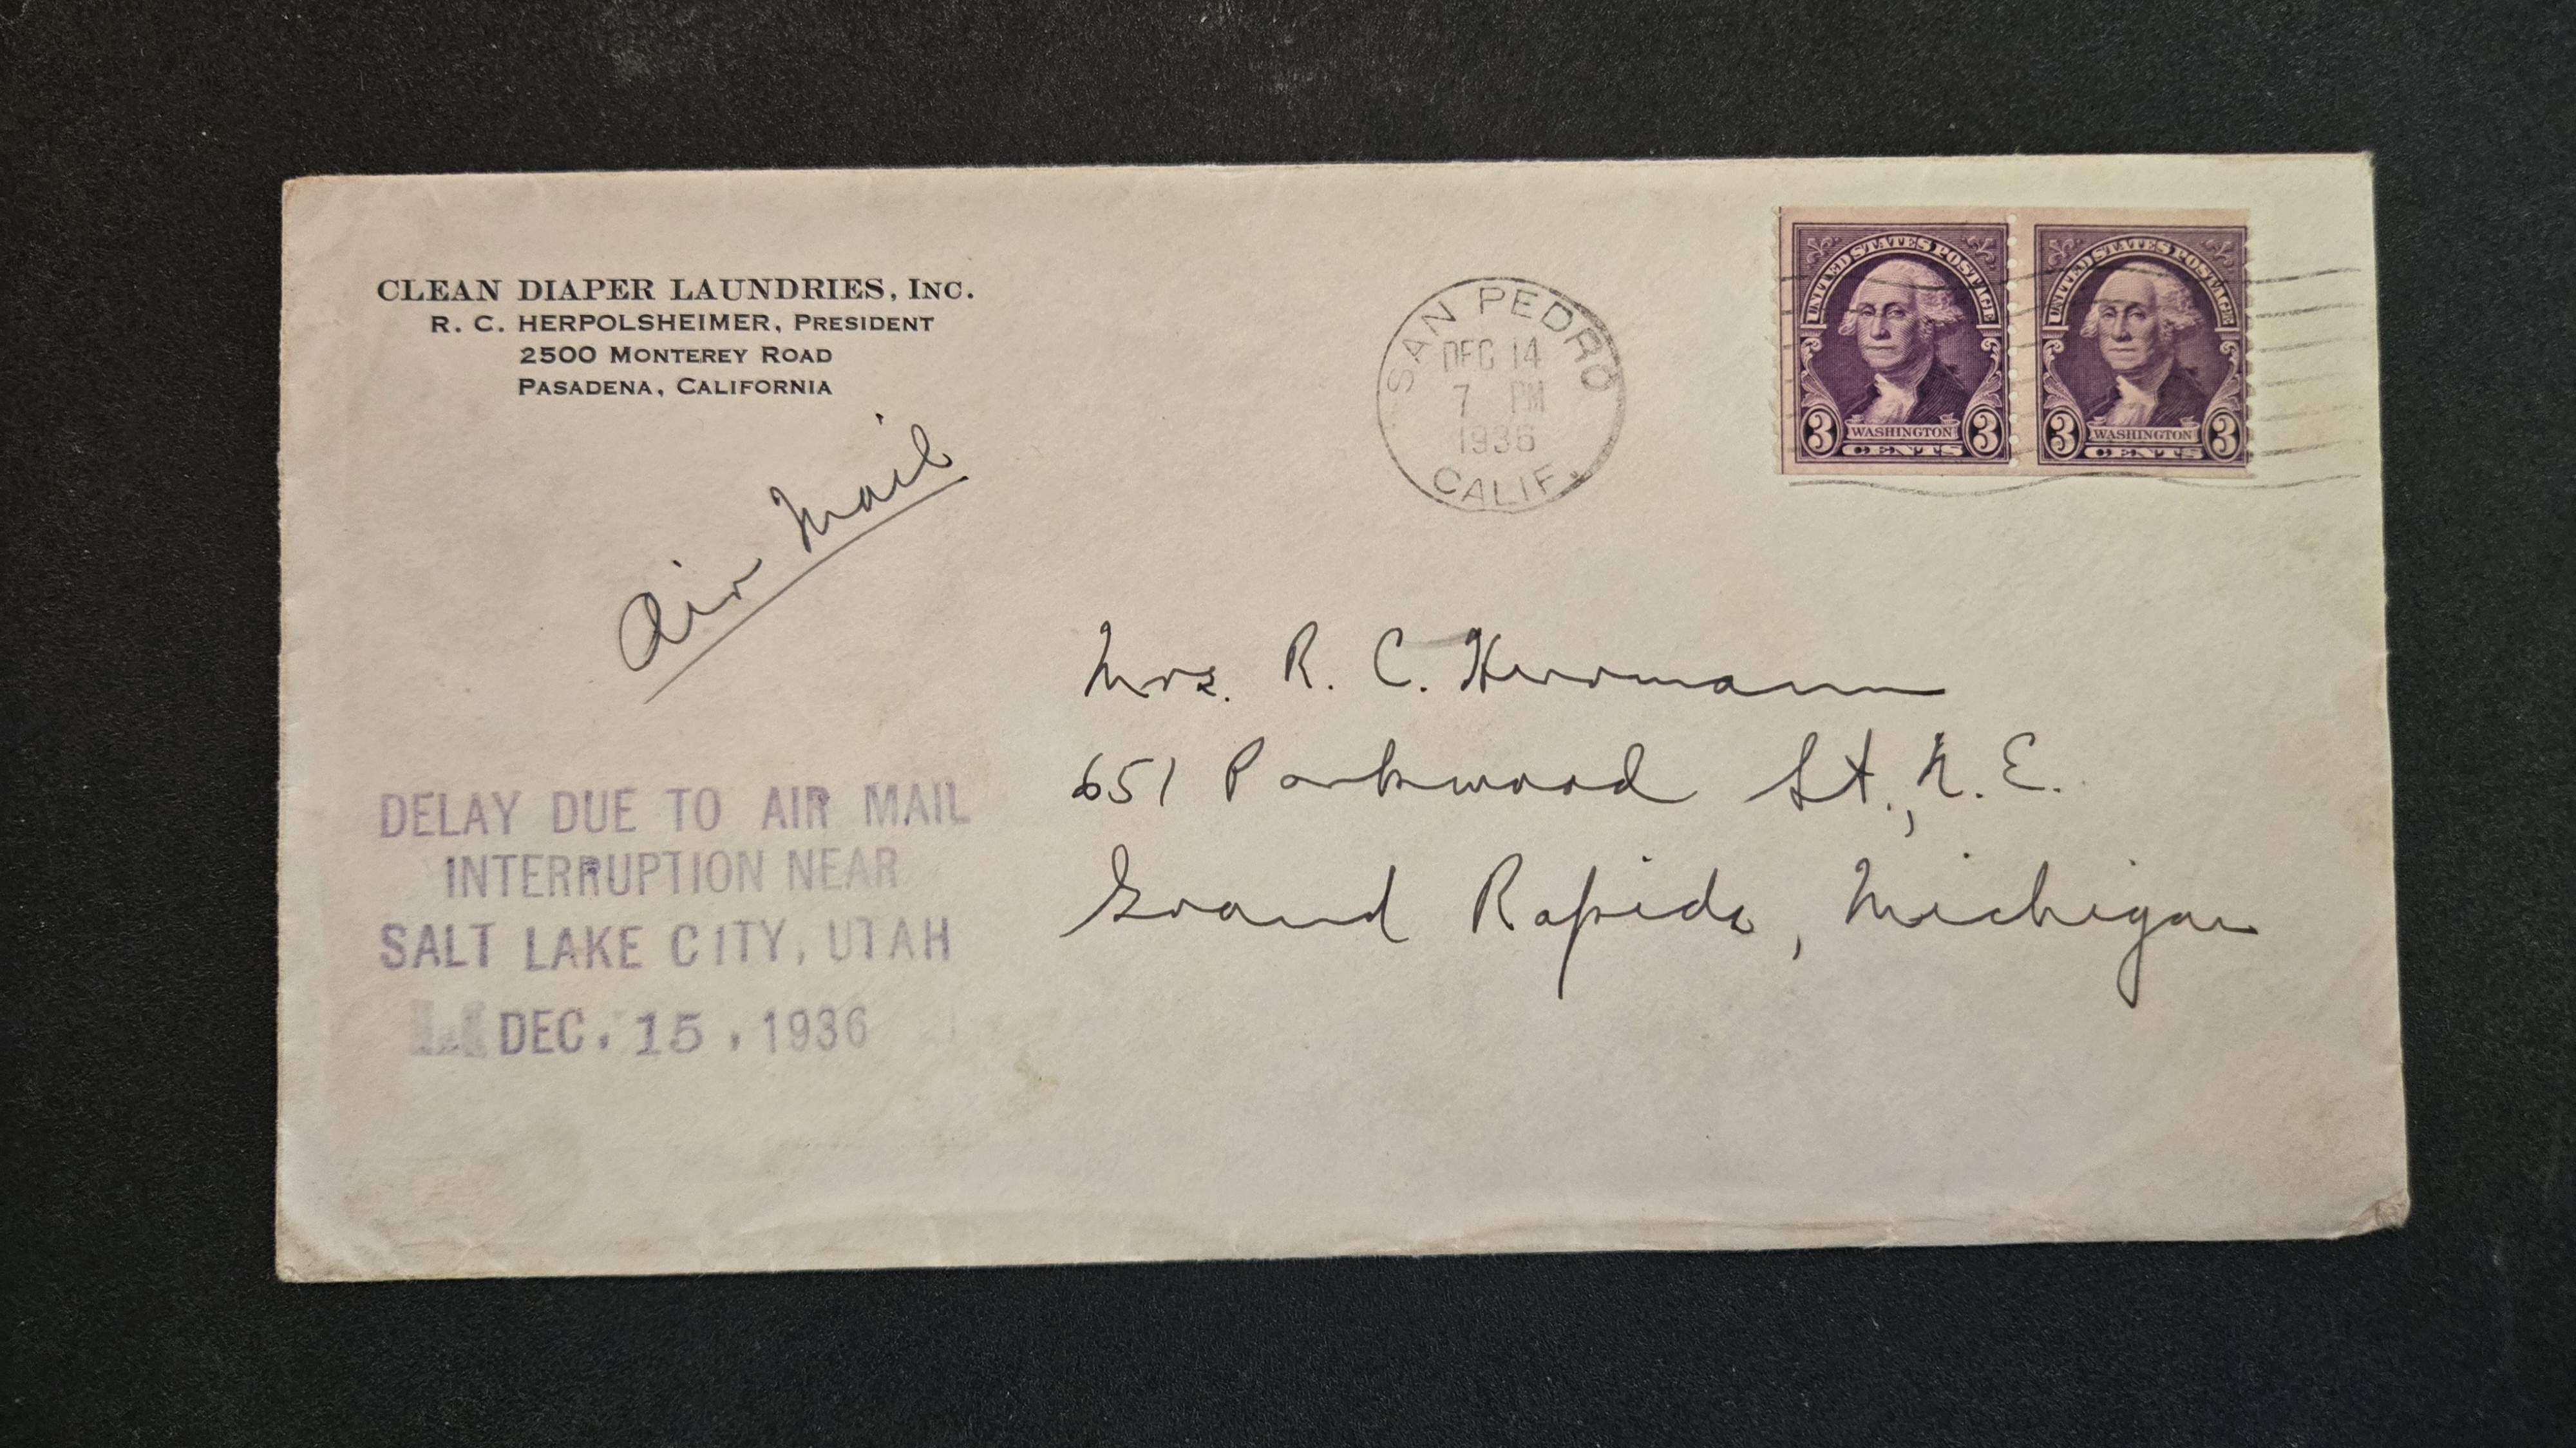 CLEAN DIAPER LAUNDRIES, INC.
R. C. HERPOLSHEIMER, PRESIDENT
2500 MONTEREY ROAD
PASADENA, CALIFORNIA
Air Mail
SAN PEDRO
DEC 14
7 PM
1936
CALIF.
UNITED STATES POSTAGE
3 WASHINGTON 3
CENTS
UNITED STATES POSTAGE
3 WASHINGTON 3
CENTS
Mrs. R. C. Herrmann
651 Parkwood St., N. E.
Grand Rapids, Michigan
DELAY DUE TO AIR MAIL
INTERRUPTION NEAR
SALT LAKE CITY, UTAH
DEC. 15, 1936